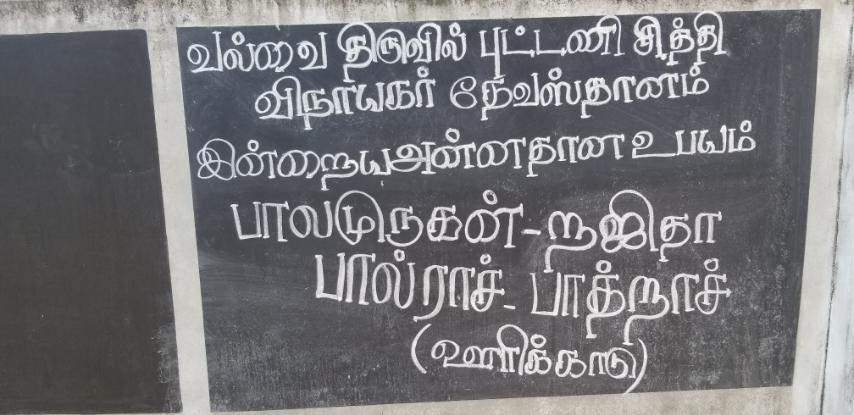 வல்வை திருவில் புட்டணி சித்தி
விநாயகர் தேவஸ்தானம்
இன்றைய அன்னதான உபயம்
பாலமுருகன் - றஜிதா
பால்ராச் - பாத்றாச்
(ஊரிக்காடு)